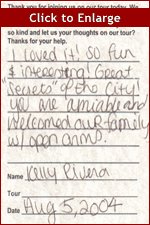 Click to Enlarge
Thank you for joining us on our tour today. We
so kind and let us know your thoughts on our tour?
Thanks for your help.
I loved it! So fun
& interesting! Great
"secrets" of the City!
You are amiable and
welcomed our family
w/ open arms.
Name Kelly Rivera
Tour
Date Aug 5, 2004